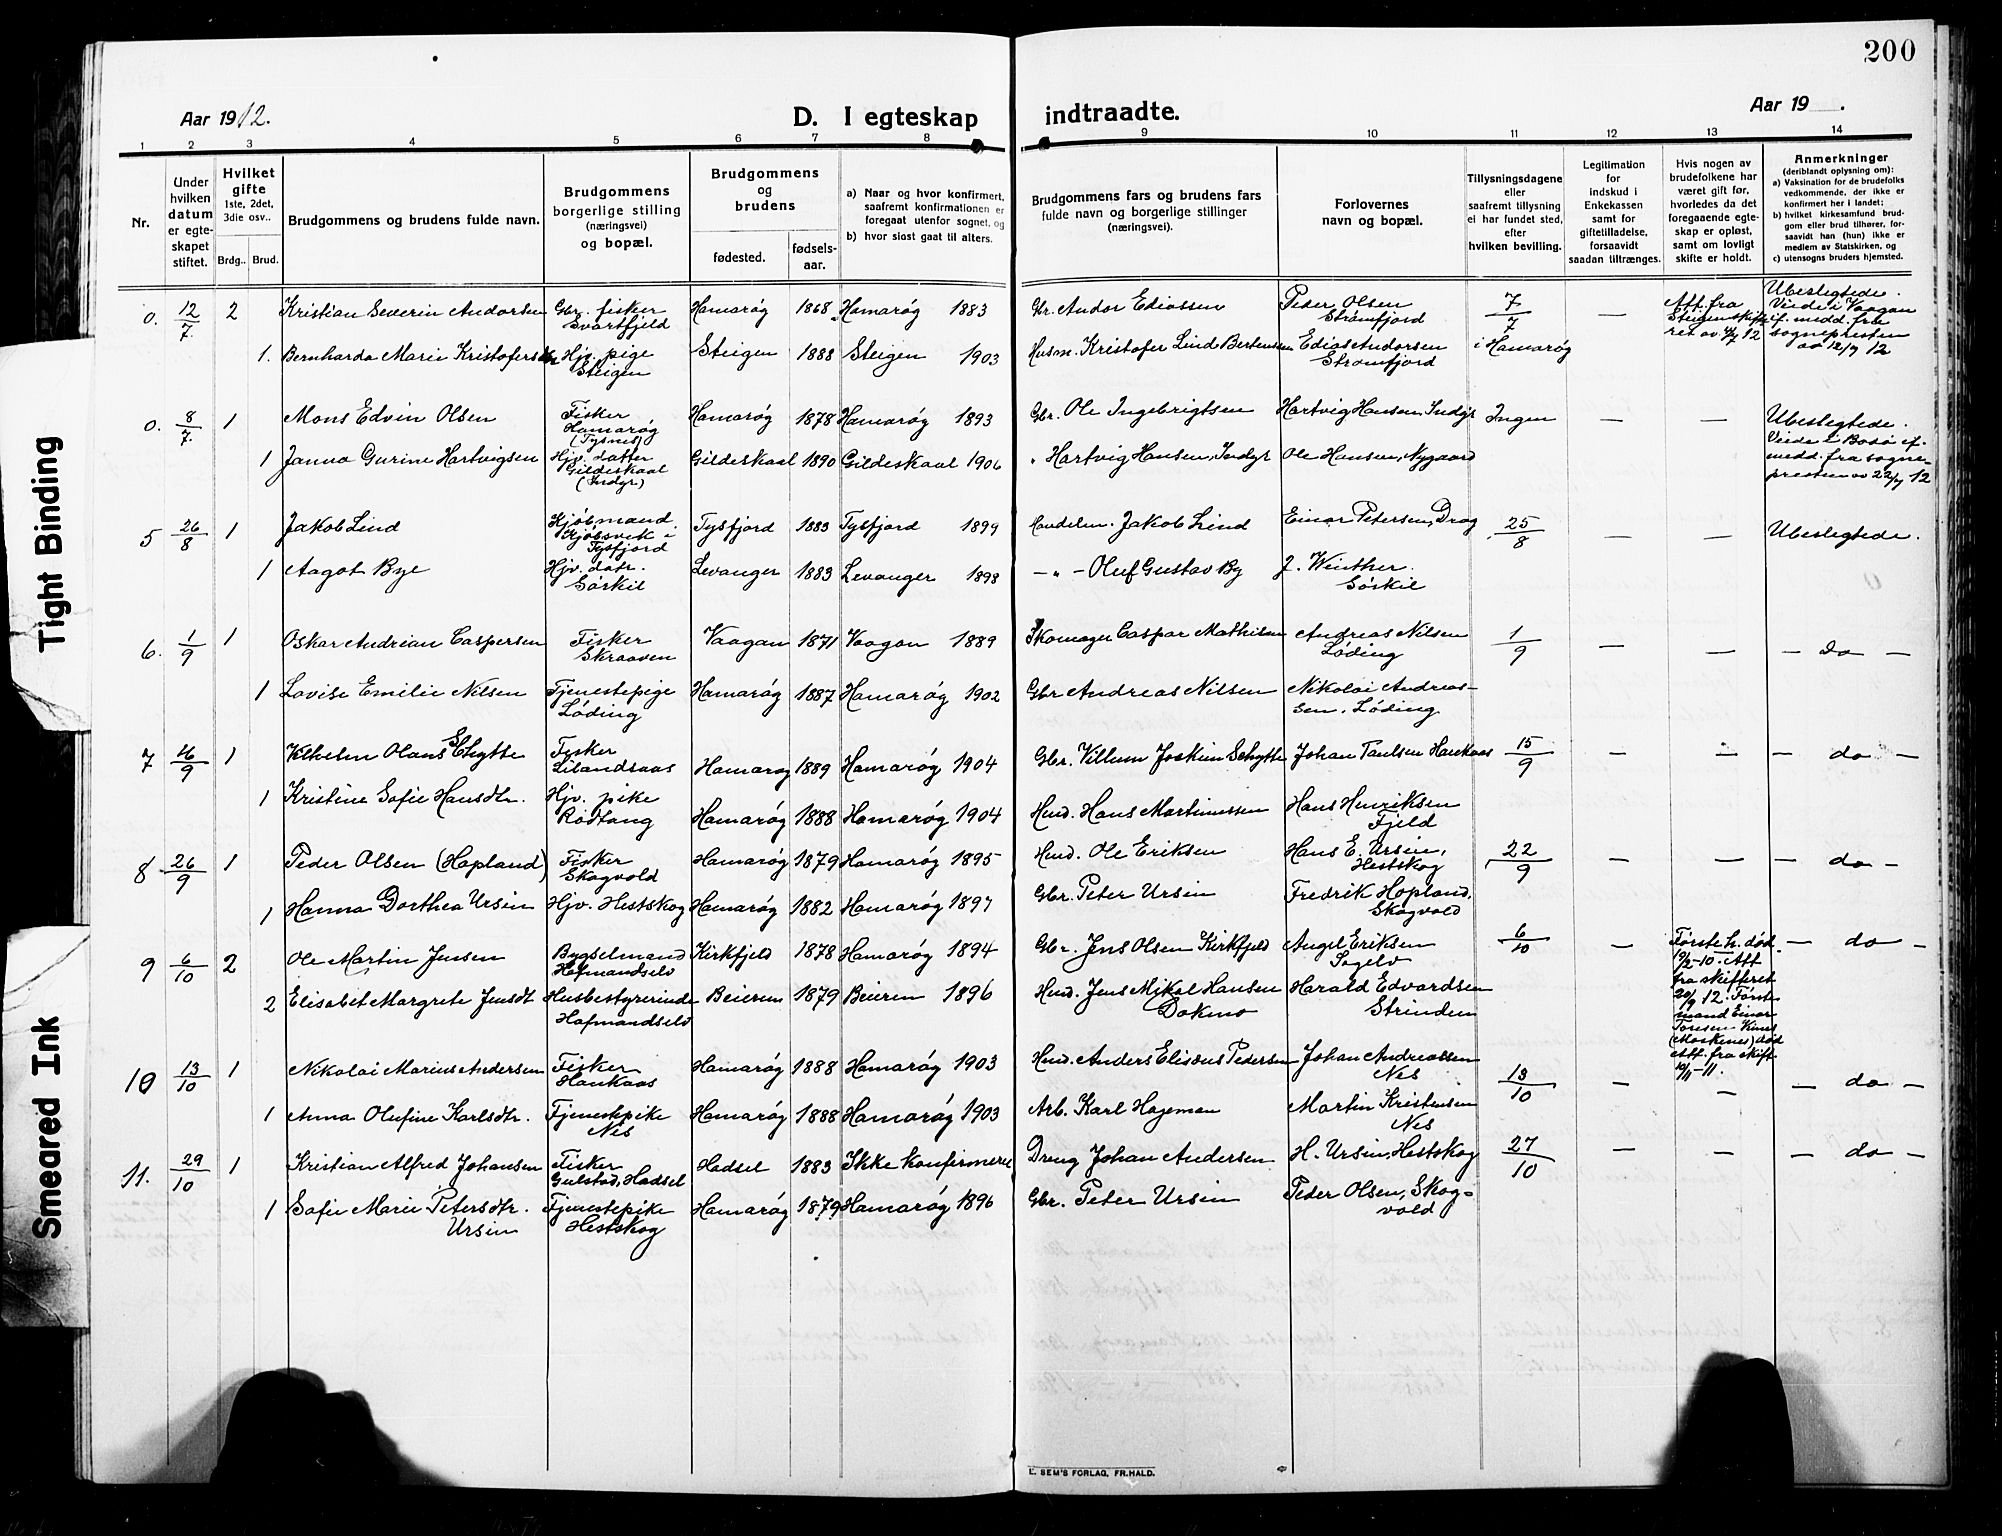 200
Aar 1912.
D. I egteskap indtraadte.
Aar 19    .
1 2 3 4 5 6 7 8 9 10 11 12 13 14
Nr.
Under hvilken datum er egteskapet stiftet.
Hvilket gifte 1ste, 2det, 3die osv..
Brdg.. Brud.
Brudgommens og brudens fulde navn.
Brudgommens borgerlige stilling (næringsvei) og bopæl.
Brudgommens og brudens
fødested.
fødsels-aar.
a) Naar og hvor konfirmert, saafremt konfirmationen er foregaat utenfor sognet, og
b) hvor sidst gaat til alters.
Brudgommens fars og brudens fars fulde navn og borgerlige stillinger (næringsvei).
Forlovernes navn og bopæl.
Tillysningsdagene eller saafremt tillysning ei har fundet sted, efter hvilken bevilling.
Legitimation for indskud i Enkekassen samt for giftetilladelse, forsaavidt saadan tiltrænges.
Hvis nogen av brudefolkene har været gift før, hvorledes da det foregaaende egteskap er opløst, samt om lovligt skifte er holdt.
Anmerkninger (deriblandt oplysning om):
a) Vaksination for de brudefolks vedkommende, der ikke er konfirmert her i landet;
b) hvilket kirkesamfund brudgom eller brud tilhører, forsaavidt han (hun) ikke er medlem av Statskirken, og
c) utensogns bruders hjemsted.
0. 12/7. 2 Kristian Severin Andorsen Gbr. fisker Svartfjeld Hamarøg 1868 Hamarøg 1883 Gbr. Andor Ediassen Peder Olsen Strømfjord 7/7 i Hamarøg — Att. fra Steigen skifteret av 4/7 12 Ubeslegtede. Viede i Vaagan if. medd. fra sognepresten av 12/7 12
1. Bernharda Marie Kristofersdtr Hjv. pige Steigen Steigen 1888 Steigen 1903 Husm. Kristofer Lind Bertensen Edias Andorsen Strømfjord
0. 8/7. 1 Mons Edvin Olsen Fisker Hamarøg (Tysnes) Hamarøg 1878 Hamarøg 1893 Gbr. Ole Ingebrigtsen Hartvig Hansen, Indyr Ingen — — Ubeslegtede. Viede i Bodø ef. medd. fra sognepresten av 22/7 12
1 Janna Gurine Hartvigsen Hjv. datter Gildeskaal (Indyr) Gildeskaal 1890 Gildeskaal 1906 " Hartvig Hansen, Indyr Ole Hansen, Nygaard
5 26/8 1 Jakob Lind Kjøbmand. Kjøbsvik i Tysfjord Tysfjord 1883 Tysfjord 1899 Handelsm. Jakob Lind Einar Petersen, Drag 25/8 — — Ubeslegtede.
1 Aagot Bye Hjv. datr. Sørkil Levanger 1883 Levanger 1898 — " — Oluf Gustav By J. Winther. Sørkil
6. 1/9 1 Oskar Andrian Caspersen Fisker Skraaven Vaagan 1871 Vaagan 1889 Skomager Caspar Mathisen Andreas Nilsen Løding 1/9 — — — do —
1 Lovise Emilie Nilsen Tjenestepige Løding Hamarøg 1887 Hamarøg 1902 Gbr Andreas Nilsen Nikolai Andreassen, Løding
7 16/9 1 Vilhelm Olans Schytte Fisker Lilandsaas Hamarøg 1889 Hamarøg 1904 Gbr. Villum Joakim Schytte Johan Paulsen Haukaas 15/9 — — — do —
1 Kristine Sofie Hansdtr. Hjv. pike Rødtang Hamarøg 1888 Hamarøg 1904 Hmd. Hans Martinussen Hans Henriksen Fjeld
8 26/9 1 Peder Olsen (Hopland) Fisker Skogvold Hamarøg 1879 Hamarøg 1895 Hmd. Ole Eriksen Hans E. Ursin, Hestskog 22/9 — — — do —
1 Hanna Dorthea Ursin Hjv. Hestskog Hamarøg 1882 Hamarøg 1897 Gbr. Peter Ursin Fredrik Hopland, Skogvold
9 6/10 2 Ole Martin Jensen Bygselmand Hofmandselv Kirkfjeld 1878 Hamarøg 1894 Gbr. Jens Olsen Kirkfjeld Angel Eriksen Sagelv 6/10 — Første h. død 19/2-10. Att fra skifteret 20/9 12. Første mand Einar Tonsen Kines (Moskenes) død Att. fra skift 10/11-11. — do —
2 Elisabet Margrete Jensdt Husbestyrerinde Hofmandselv Beieren 1879 Beieren 1896 Hmd. Jens Mikal Hansen Dokmo Harald Edvardsen Strinden
10 13/10 1 Nikolai Marius Andersen Fisker Haukaas Hamarøg 1888 Hamarøg 1903 Hmd. Anders Elisæus Pedersen Johan Andreassen Nes 13/10 — — — do —
1 Anna Olufine Karlsdtr. Tjenestepike Nes Hamarøg 1888 Hamarøg 1903 Arb. Karl Hageman Martin Kristensen Nes
11. 29/10 1 Kristian Alfred Johansen Fisker Gulstad, Hadsel Hadsel 1883 Ikke konfirmeret Dreng Johan Andersen H. Ursin, Hestskog 27/10 — — — do —
1 Sofie Marie Petersdtr. Ursin Tjenestepike Hestskog Hamarøg 1879 Hamarøg 1896 Gbr. Peter Ursin Peder Olsen, Skogvold
E. SEM'S FORLAG, FR.HALD.
Tight Binding
Smeared Ink